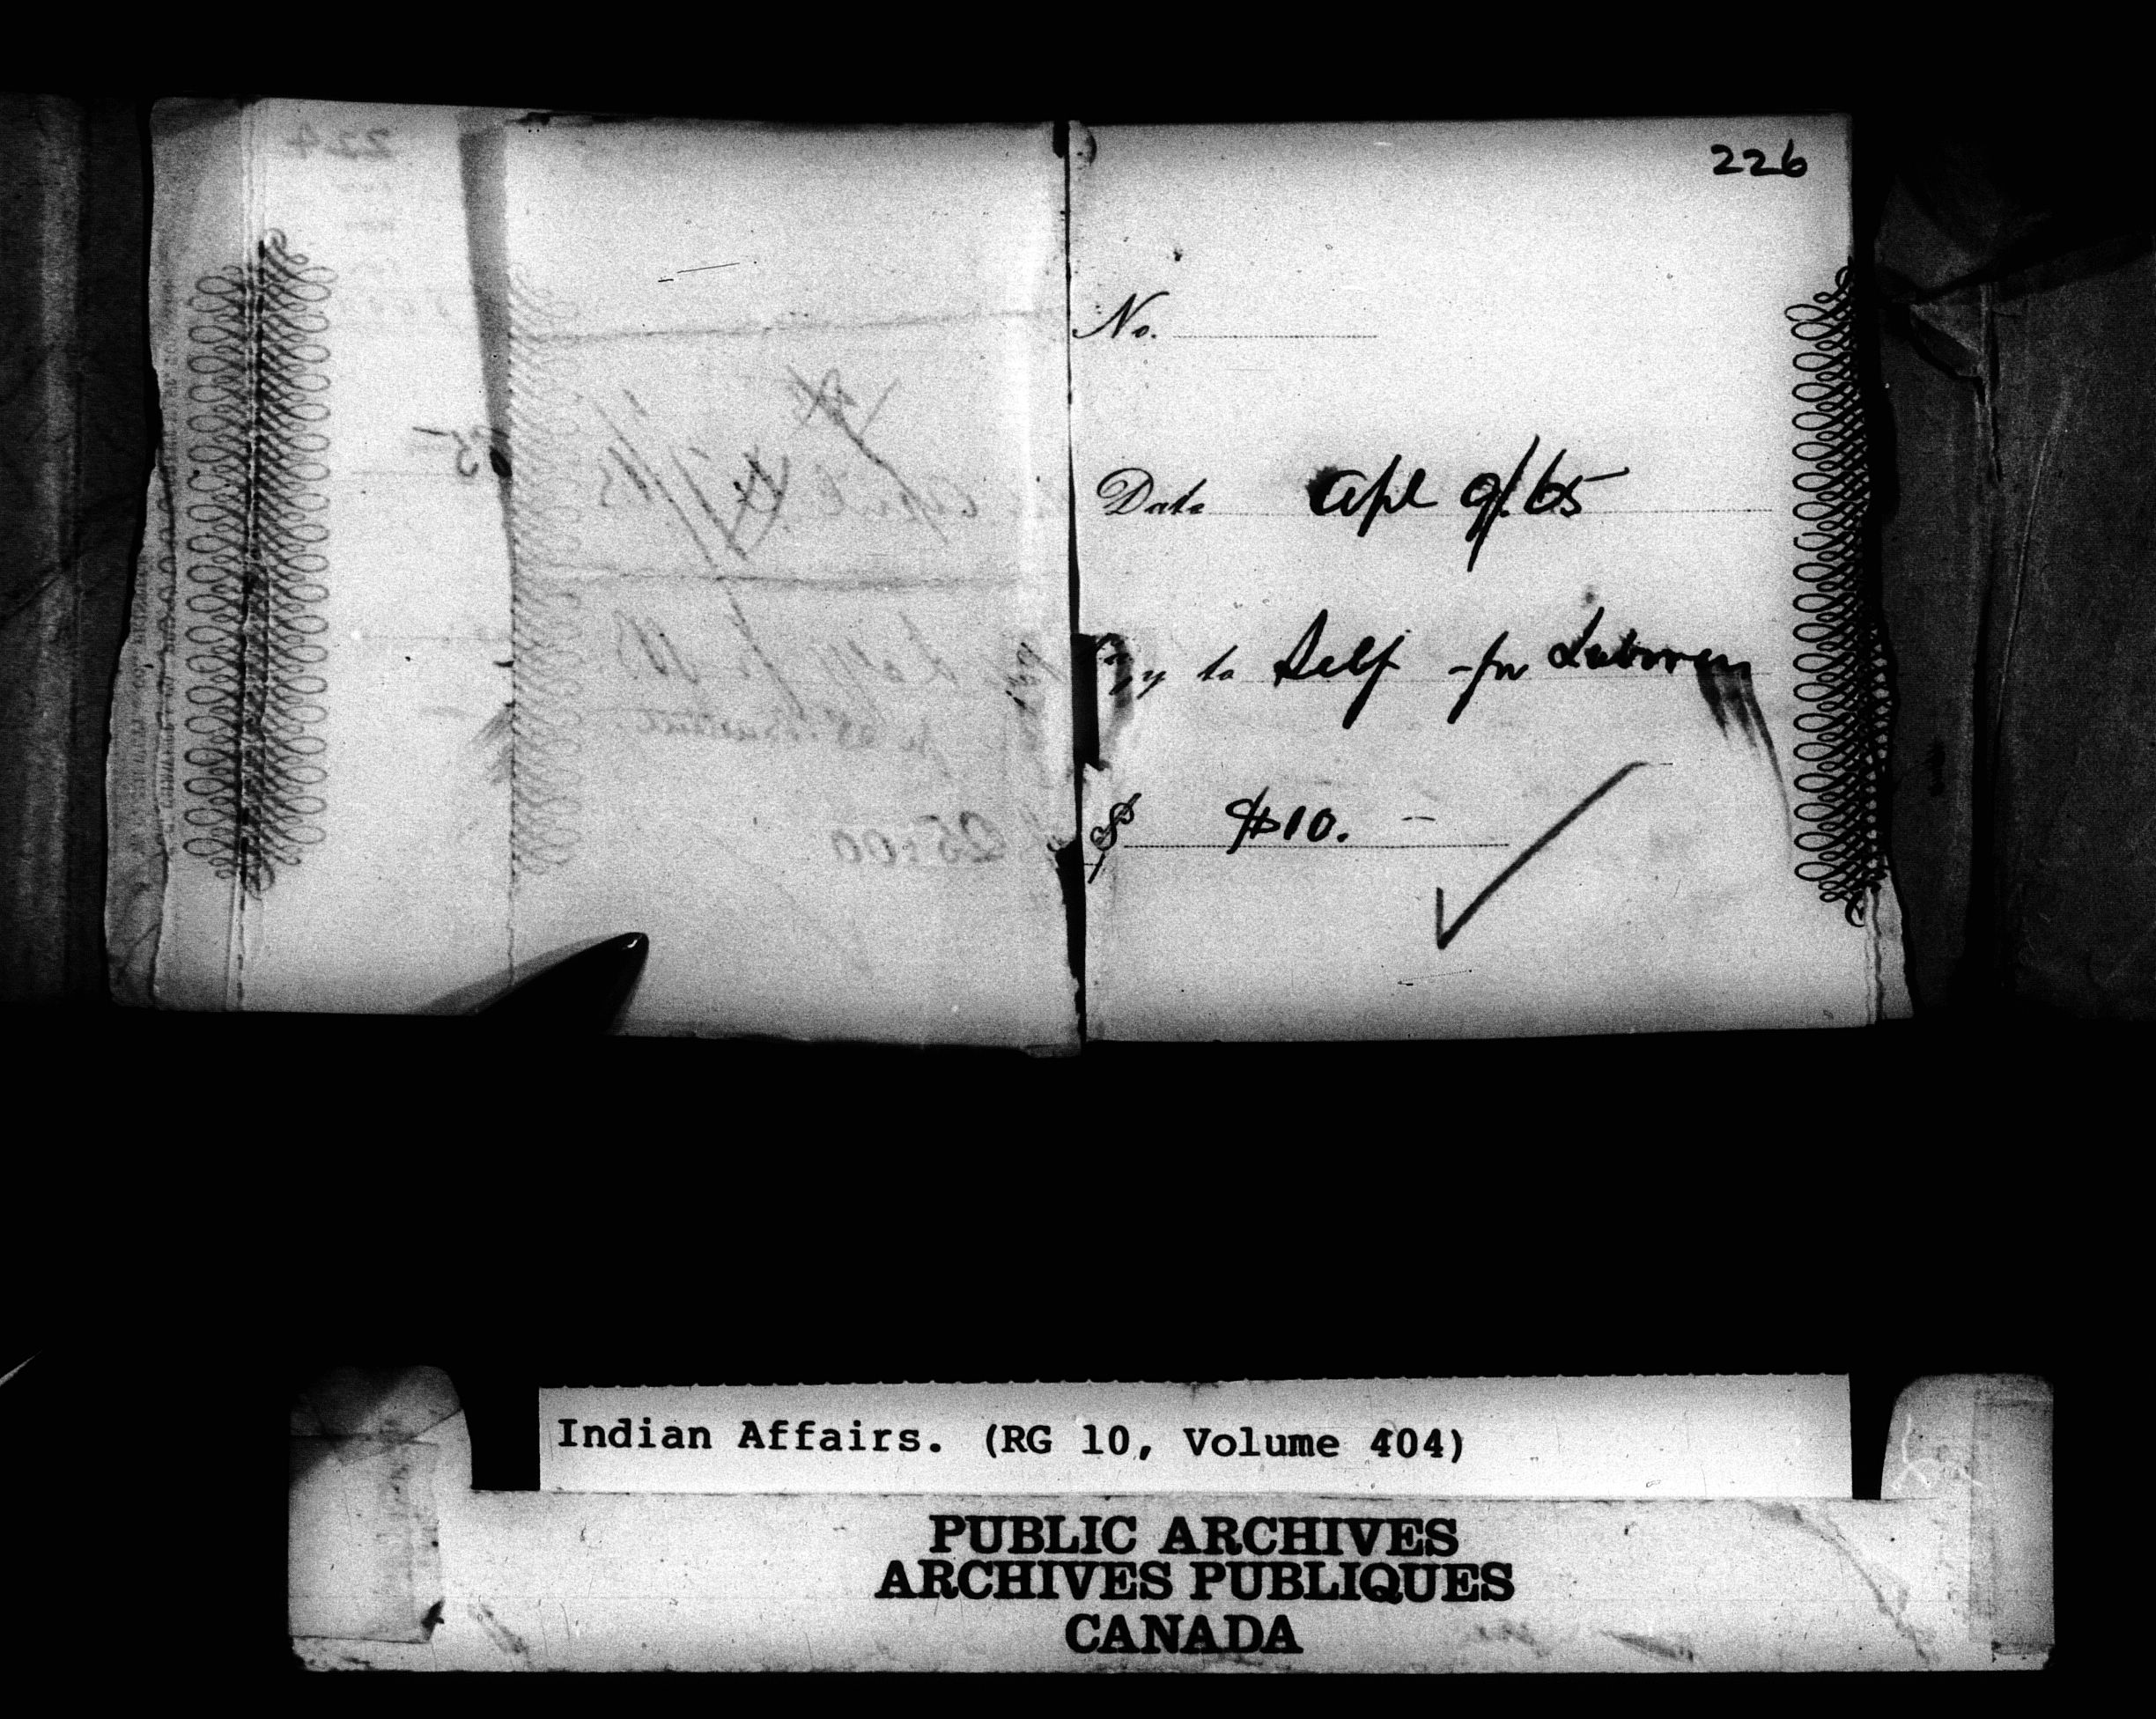 226
No.
Date Apl 9/65
Pay to Self - for
$ $10. -
Indian Affairs. (RG 10, Volume 404)
PUBLIC ARCHIVES
ARCHIVES PUBLIQUES
CANADA